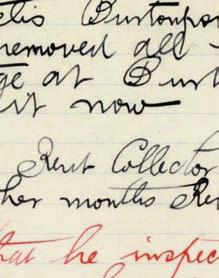 tis Burtonpor
removed all
ge at Burt
it now
Rent Collector
her months Re
that he inspec